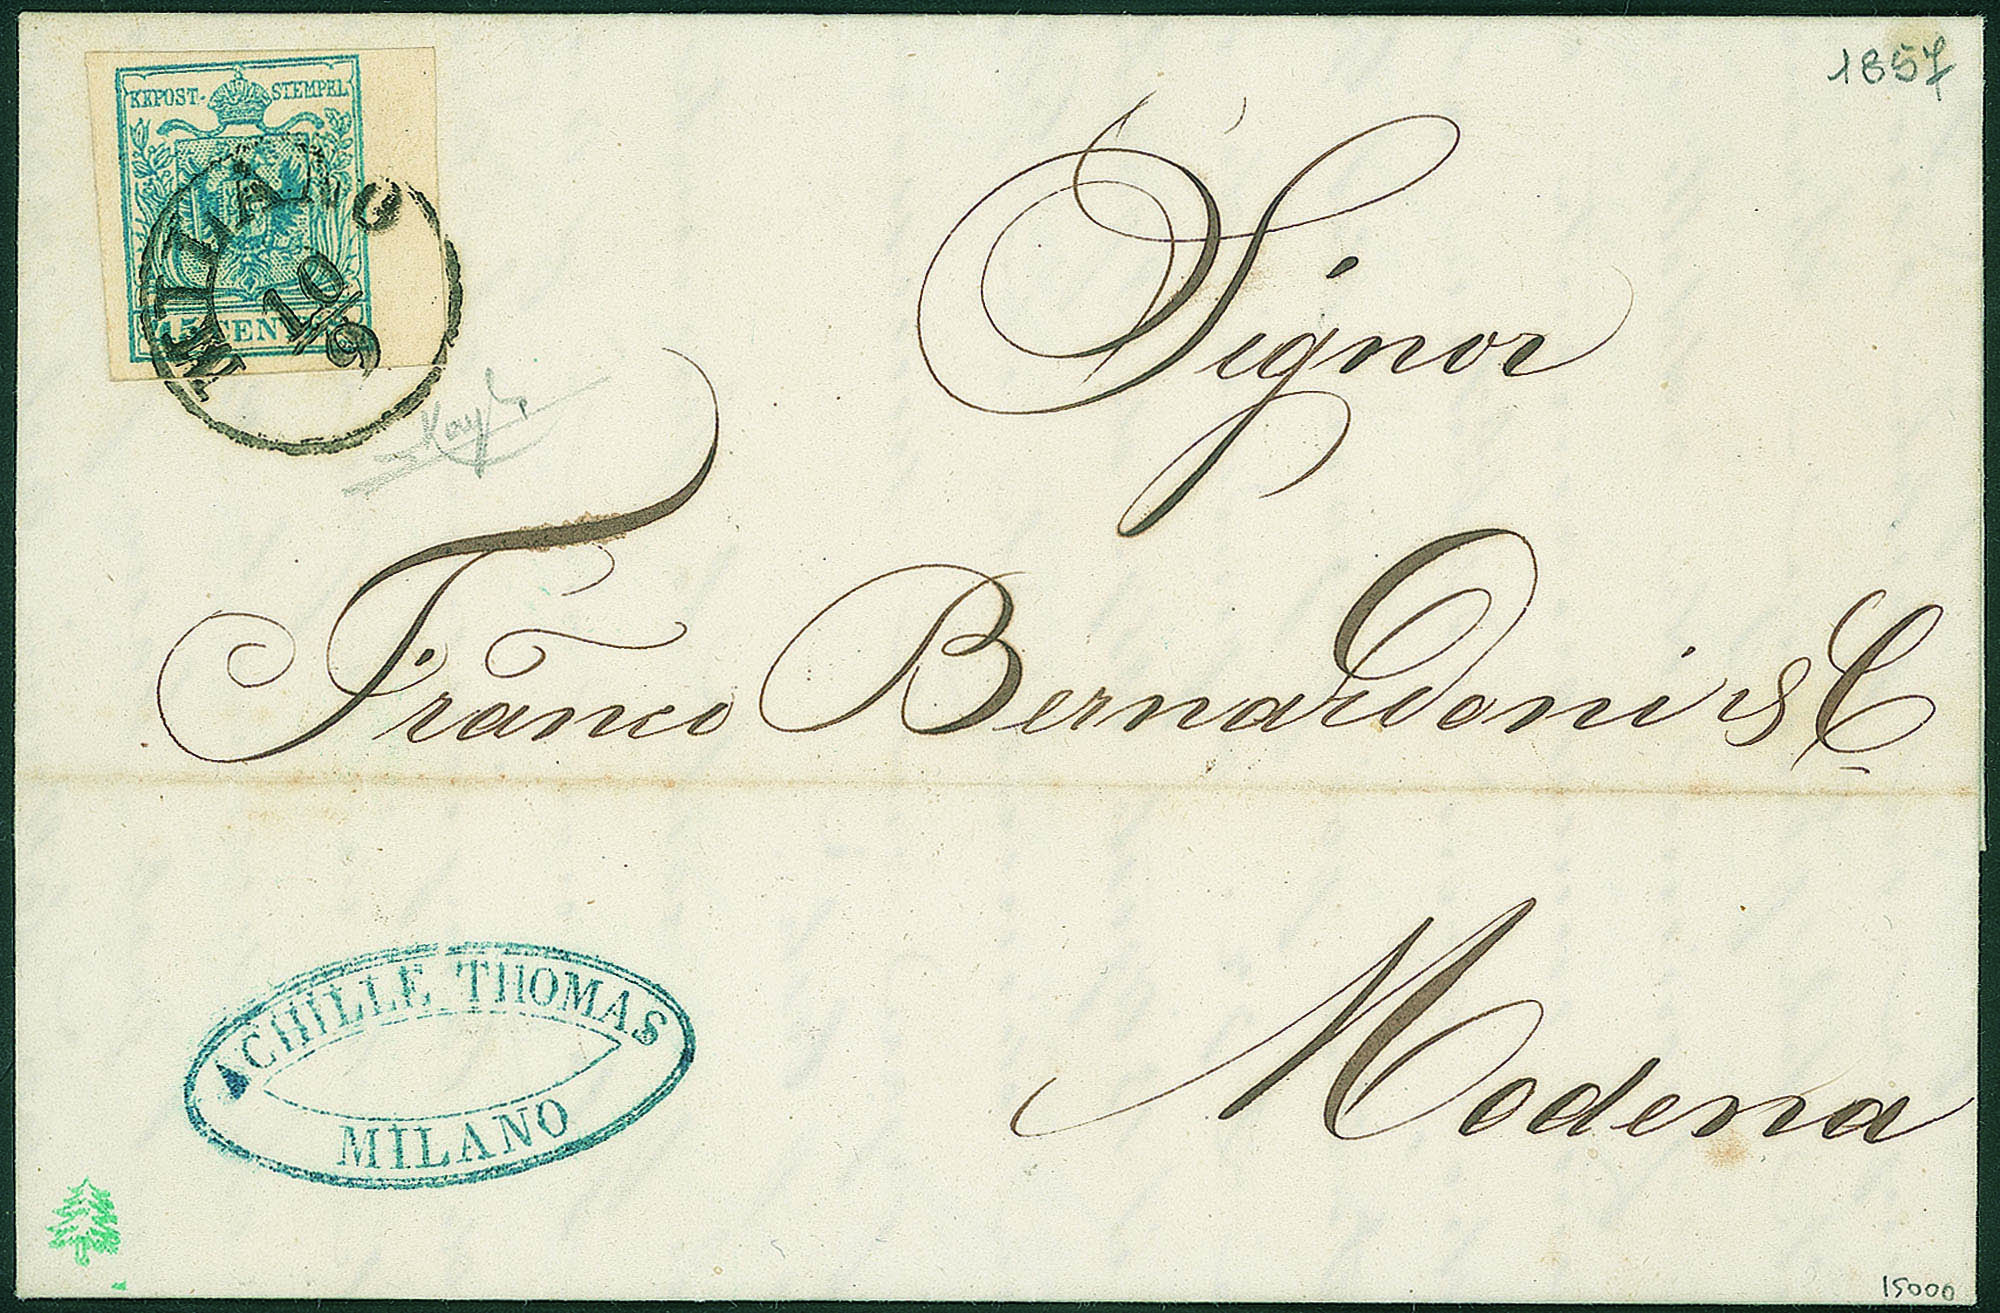 KKPOST-STEMPEL
15 CENTES
MILANO
10/9
1857
Signor
Franco Bernardoni & C
Modena
ACHILLE THOMAS
MILANO
15000